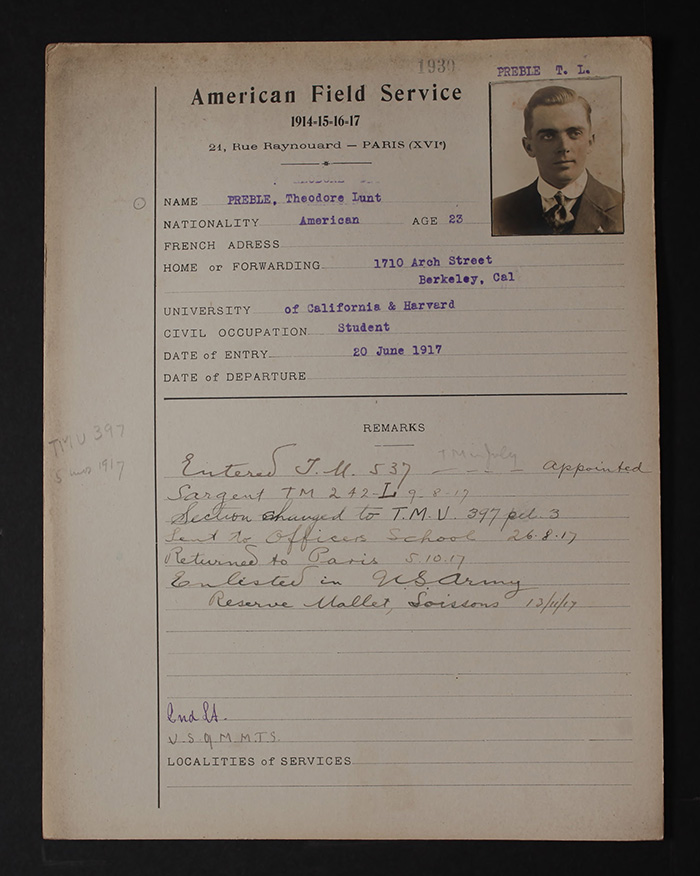 1939
PREBLE T. L.
American Field Service
1914-15-16-17
21, Rue Raynouard — PARIS (XVIe)
NAME PREBLE, Theodore Lunt
NATIONALITY American AGE 23
FRENCH ADRESS
HOME or FORWARDING 1710 Arch Street
Berkeley, Cal
UNIVERSITY of California & Harvard
CIVIL OCCUPATION Student
DATE of ENTRY 20 June 1917
DATE of DEPARTURE
REMARKS
TMU 397
5 1917
Entered T.M. 537 TM in July appointed
Sargent TM 242-L 9-8-17
Section changed to T.M.U. 397 pel. 3
Sent to Officers School 26.8.17
Returned to Paris 5.10.17
Enlisted in U.S. Army
Reserve Mallet, Soissons 12/11/17
2nd Lt.
U.S.Q.M.M.T.S.
LOCALITIES of SERVICES